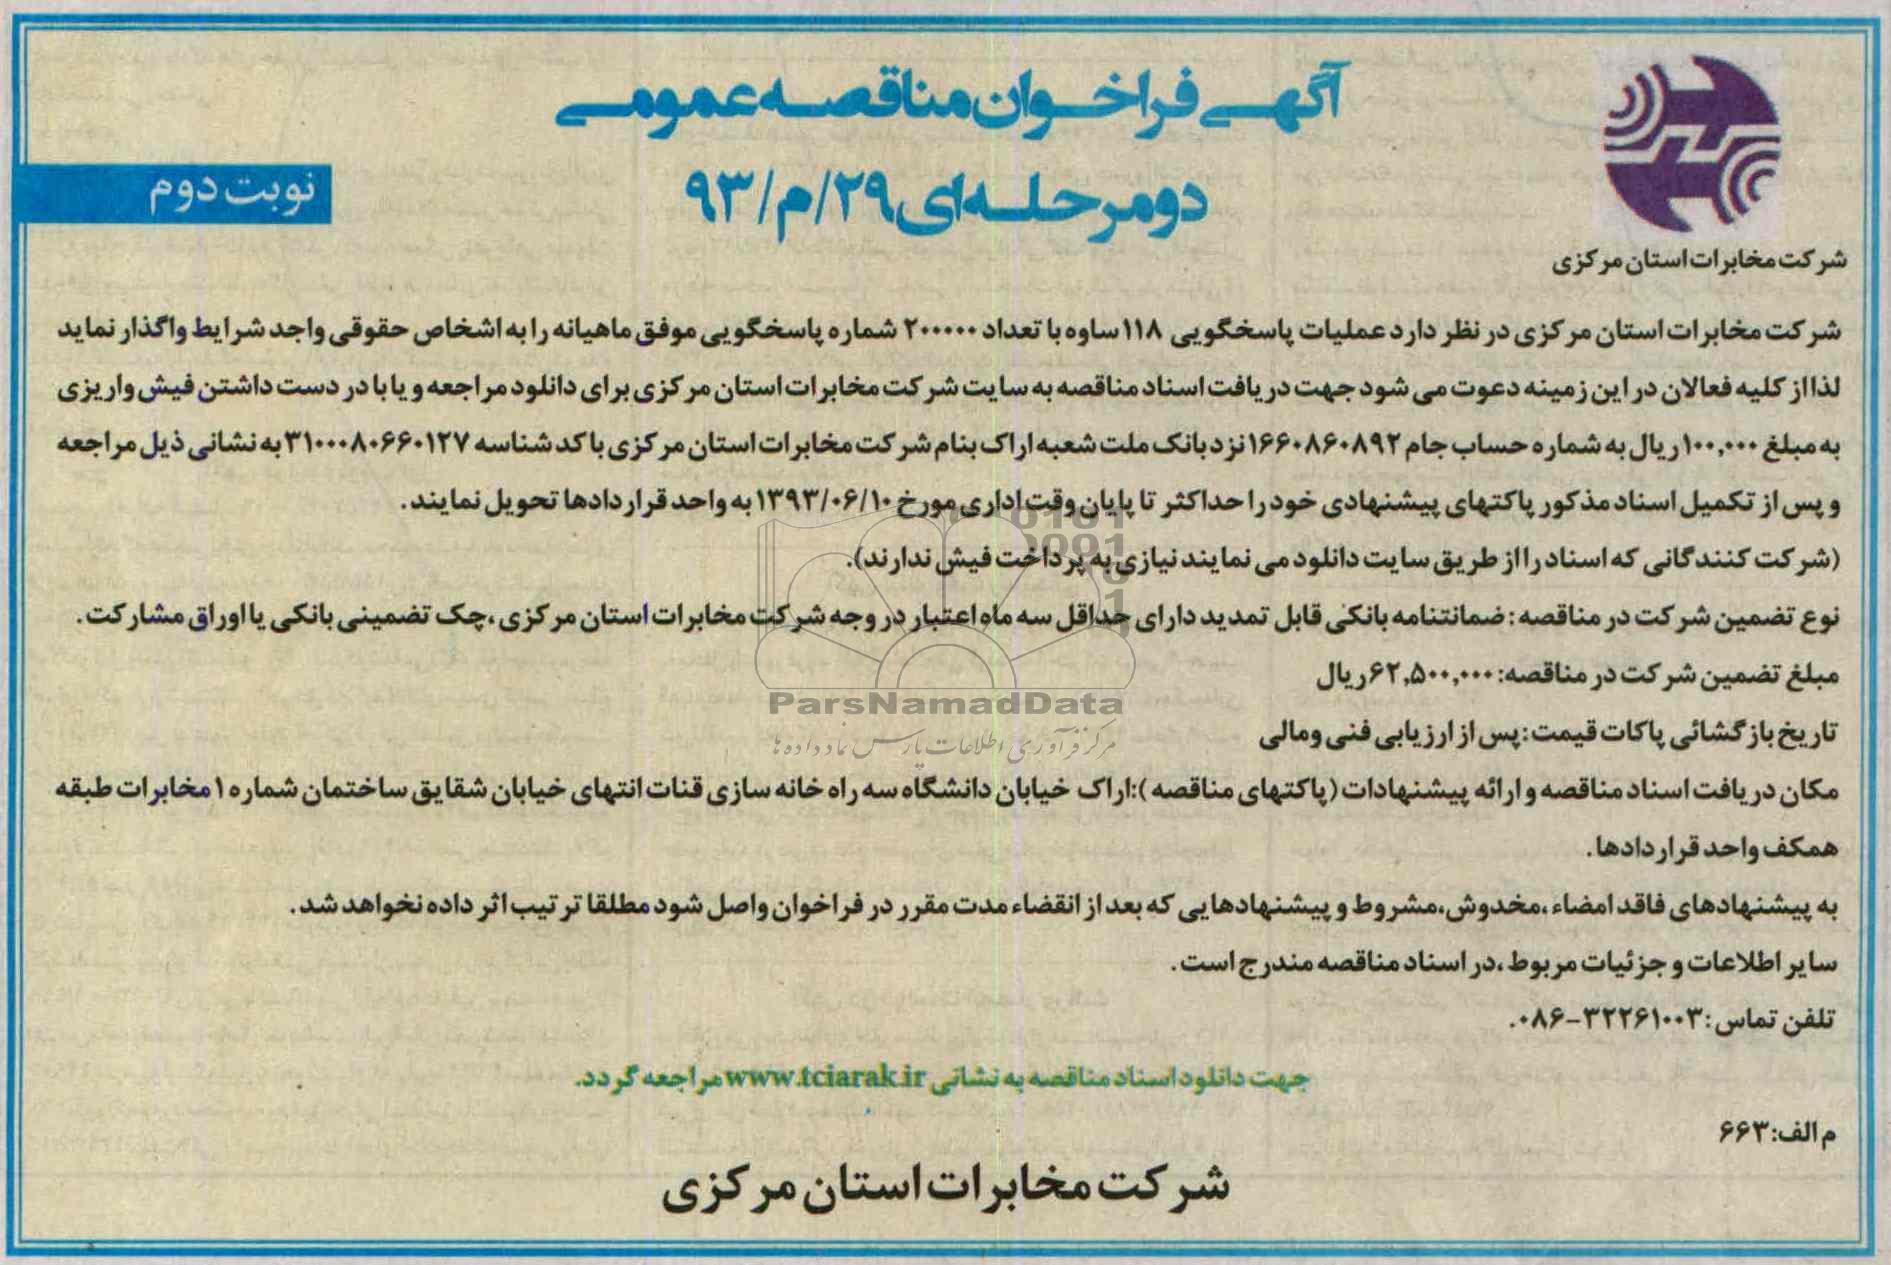 آگهی فراخوان مناقصه عمومی
دومرحله‌ای ۲۹/م/۹۳
نوبت دوم
شرکت مخابرات استان مرکزی
شرکت مخابرات استان مرکزی در نظر دارد عملیات پاسخگویی ۱۱۸ ساوه با تعداد ۲۰۰۰۰۰ شماره پاسخگویی موفق ماهیانه را به اشخاص حقوقی واجد شرایط واگذار نماید
لذا از کلیه فعالان در این زمینه دعوت می شود جهت دریافت اسناد مناقصه به سایت شرکت مخابرات استان مرکزی برای دانلود مراجعه و یا با در دست داشتن فیش واریزی
به مبلغ ۱۰۰,۰۰۰ ریال به شماره حساب جام ۱۶۶۰۸۶۰۸۹۲ نزد بانک ملت شعبه اراک بنام شرکت مخابرات استان مرکزی با کد شناسه ۳۱۰۰۰۸۰۶۶۰۱۲۷ به نشانی ذیل مراجعه
و پس از تکمیل اسناد مذکور پاکتهای پیشنهادی خود را حداکثر تا پایان وقت اداری مورخ ۱۳۹۳/۰۶/۱۰ به واحد قراردادها تحویل نمایند.
(شرکت کنندگانی که اسناد را از طریق سایت دانلود می نمایند نیازی به پرداخت فیش ندارند).
نوع تضمین شرکت در مناقصه: ضمانتنامه بانکی قابل تمدید دارای حداقل سه ماه اعتبار در وجه شرکت مخابرات استان مرکزی، چک تضمینی بانکی یا اوراق مشارکت.
مبلغ تضمین شرکت در مناقصه: ۶۲,۵۰۰,۰۰۰ ریال
تاریخ بازگشائی پاکات قیمت: پس از ارزیابی فنی ومالی
مکان دریافت اسناد مناقصه و ارائه پیشنهادات (پاکتهای مناقصه): اراک خیابان دانشگاه سه راه خانه سازی قنات انتهای خیابان شقایق ساختمان شماره ۱ مخابرات طبقه
همکف واحد قراردادها.
به پیشنهادهای فاقد امضاء، مخدوش، مشروط و پیشنهادهایی که بعد از انقضاء مدت مقرر در فراخوان واصل شود مطلقا ترتیب اثر داده نخواهد شد.
سایر اطلاعات و جزئیات مربوط، در اسناد مناقصه مندرج است.
تلفن تماس: ۳۲۲۶۱۰۰۳-۰۸۶
جهت دانلود اسناد مناقصه به نشانی www.tciarak.ir مراجعه گردد.
م الف: ۶۶۳
شرکت مخابرات استان مرکزی
ParsNamadData
مرکز فرآوری اطلاعات پارس نماد داده ها